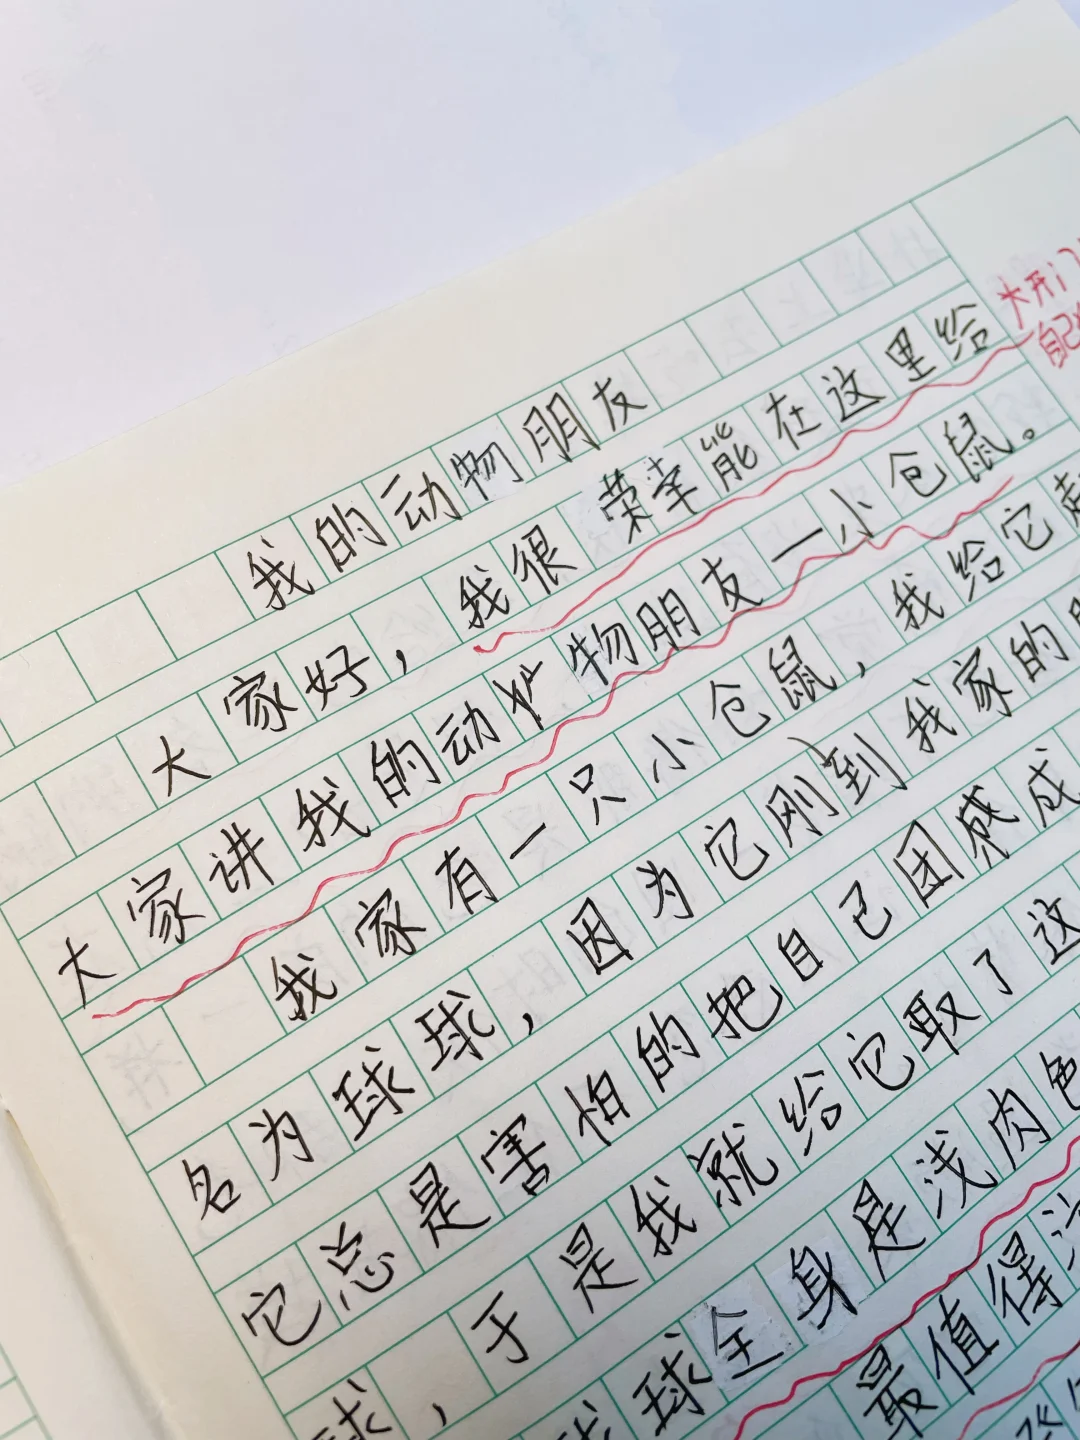 我的动物朋友
大家好，我很荣幸能在这里给
大家讲我的动物朋友一小仓鼠。
我家有一只小仓鼠，我给它起
名为球球，因为它刚到我家的
它总是害怕的把自己团成
，于是我就给它取了这
球球全身是浅肉色
最值得
开门
自己